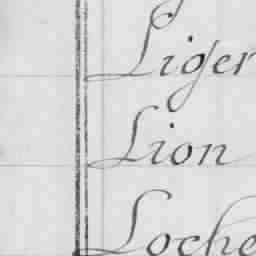 Liger
Lion
Loche